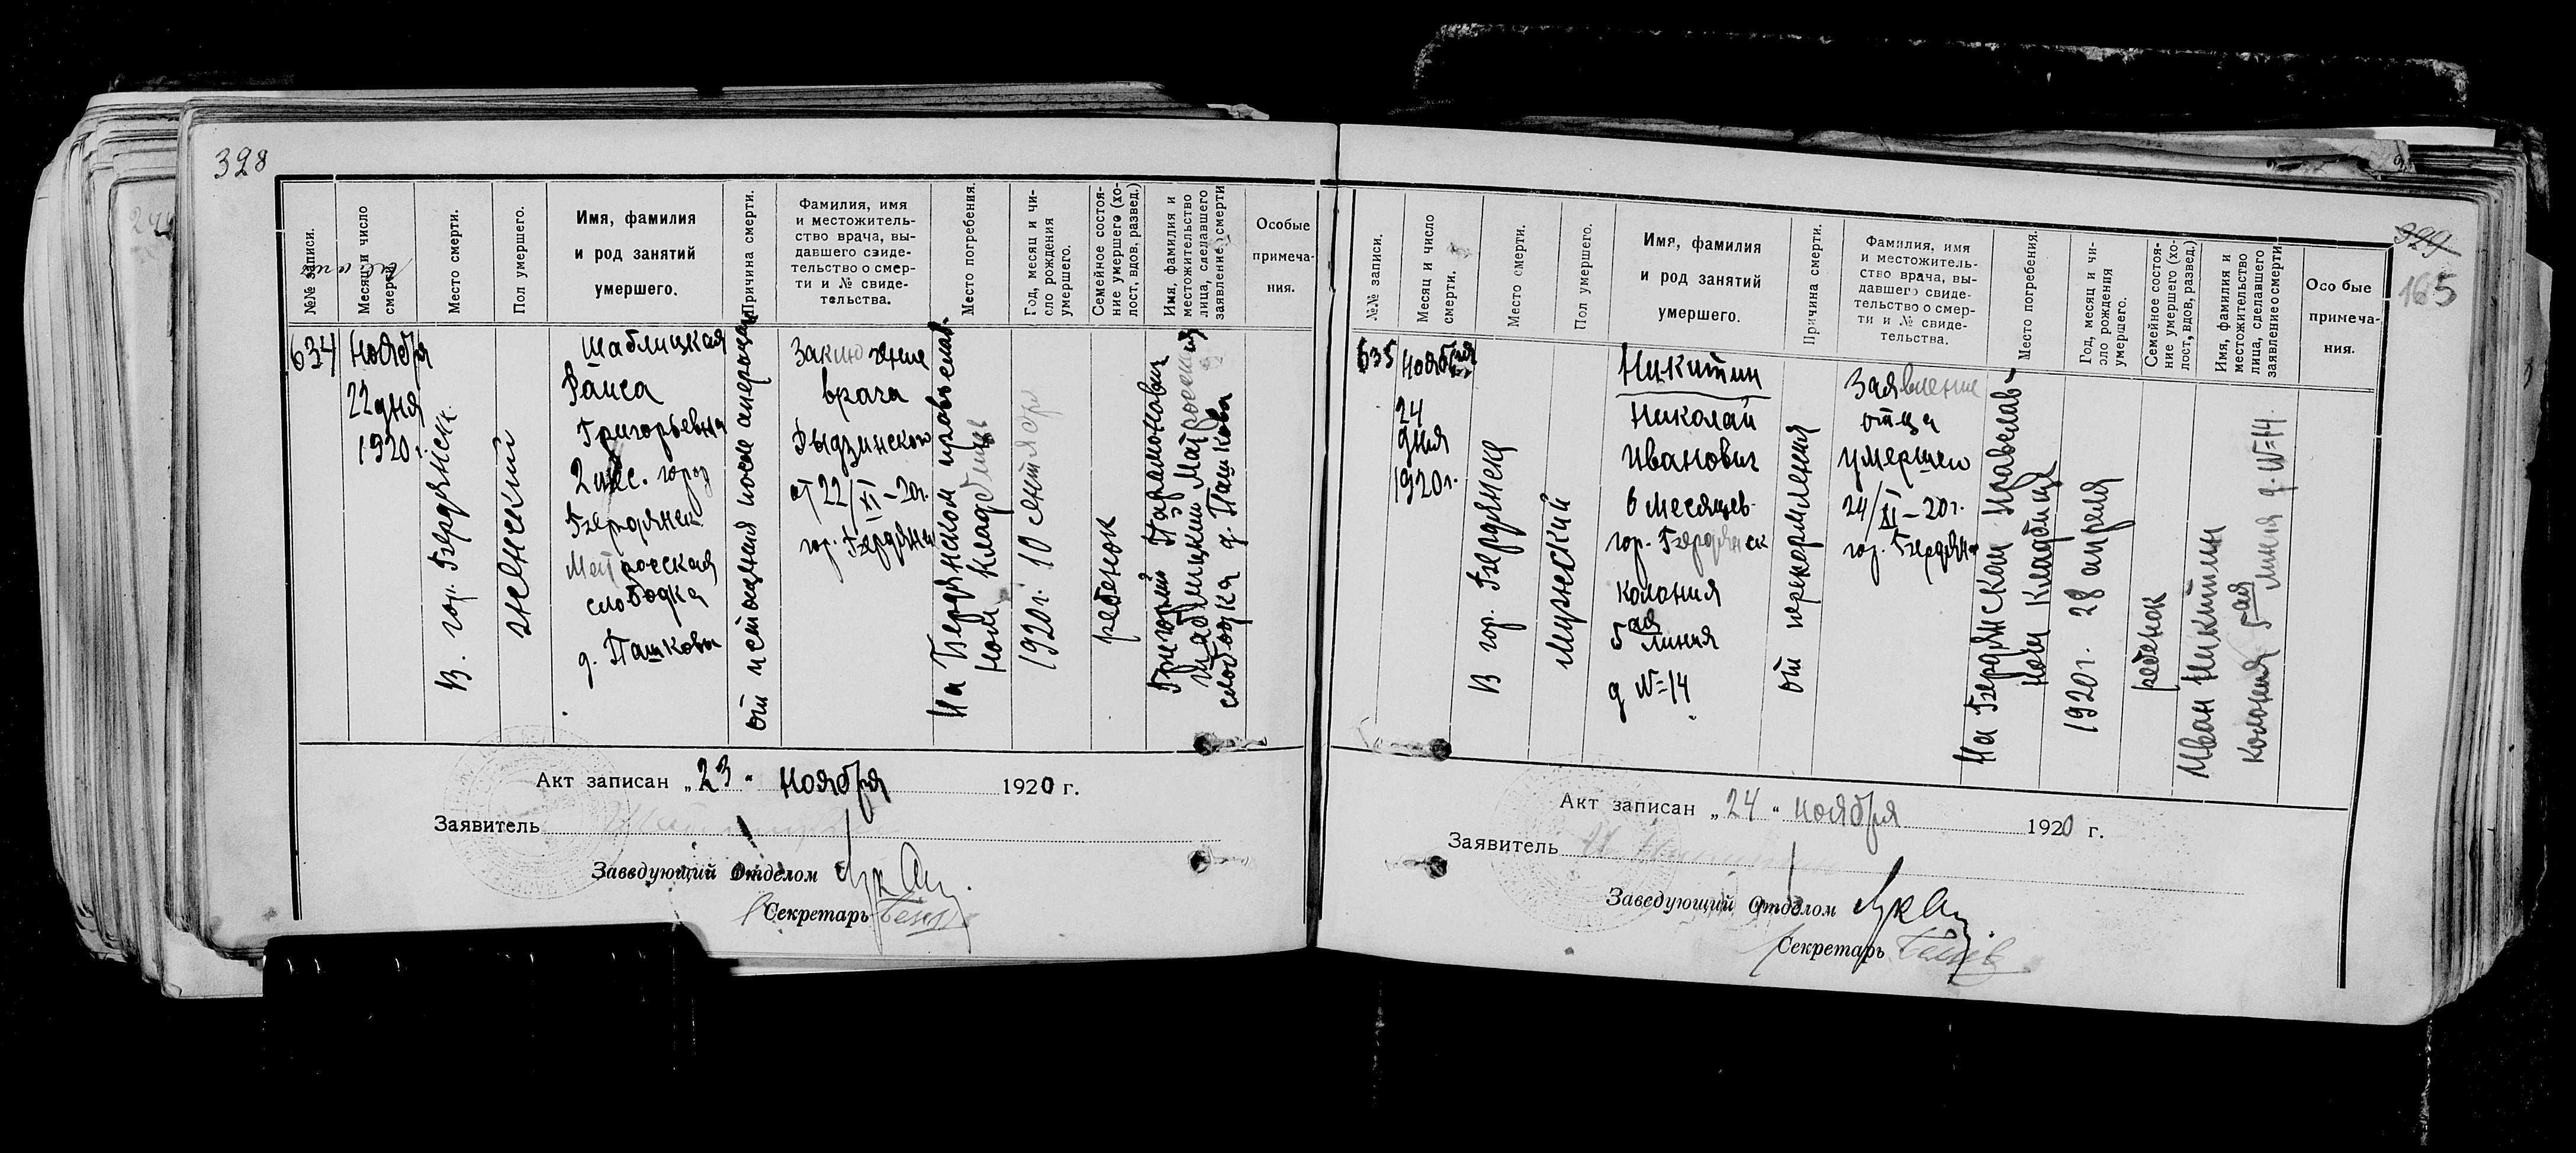 328
№№ записи.
Месяц и число
смерти.
Место смерти.
Пол умершего.
Имя, фамилия
и род занятий
умершего.
Причина смерти.
Фамилия, имя
и местожитель-
ство врача, вы-
давшего свиде-
тельство о смер-
ти и № свиде-
тельства.
Место погребения.
Год, месяц и чи-
сло рождения
умершего.
Семейное состоя-
ние умершего (хо-
лост, вдов, развед.)
Имя, фамилия и
местожительство
лица, сделавшего
заявление о смерти
Особые
примеча-
ния.
634
Ноября
22 дня
1920 г.
В гор. Бердянск
женский
Шаблицкая
Раиса
Григорьевна
2 мес. гор
Бердянск
слободка
д. Пашкова
от истощения после операции
Заключение
врача
Рыдзинского
от 22/XI – 20 г.
гор. Бердянск
На Бердянском православ.
ном кладбище
1920 г. 10 сентября
ребенок
Григорий Парамонович
Шаблицкий
слободка д. Пашкова
Акт записан „23“ ноября 1920 г.
Заявитель
Заведующий Отделом
Секретарь
329
165
№№ записи.
Месяц и число
смерти.
Место смерти.
Пол умершего.
Имя, фамилия
и род занятий
умершего.
Причина смерти.
Фамилия, имя
и местожитель-
ство врача, вы-
давшего свиде-
тельство о смер-
ти и № свиде-
тельства.
Место погребения.
Год, месяц и чи-
сло рождения
умершего.
Семейное состоя-
ние умершего (хо-
лост, вдов, развед.)
Имя, фамилия и
местожительство
лица, сделавшего
заявление о смерти
Особые
примеча-
ния.
635
Ноября
24
дня
1920 г.
В гор. Бердянск
мужской
Никитин
Николай
Иванович
6 месяцев
гор. Бердянск
колония
5ая линия
д № 14
от перекормления
Заявление
отца
умершего
24/XI – 20 г.
гор. Бердянск
На Бердянском православ-
ном кладбище
1920 г. 28 апреля
ребенок
Иван Никитин
колония 5ая линия д. № 14.
Акт записан „24“ ноября 1920 г.
Заявитель
Заведующий Отделом
Секретарь